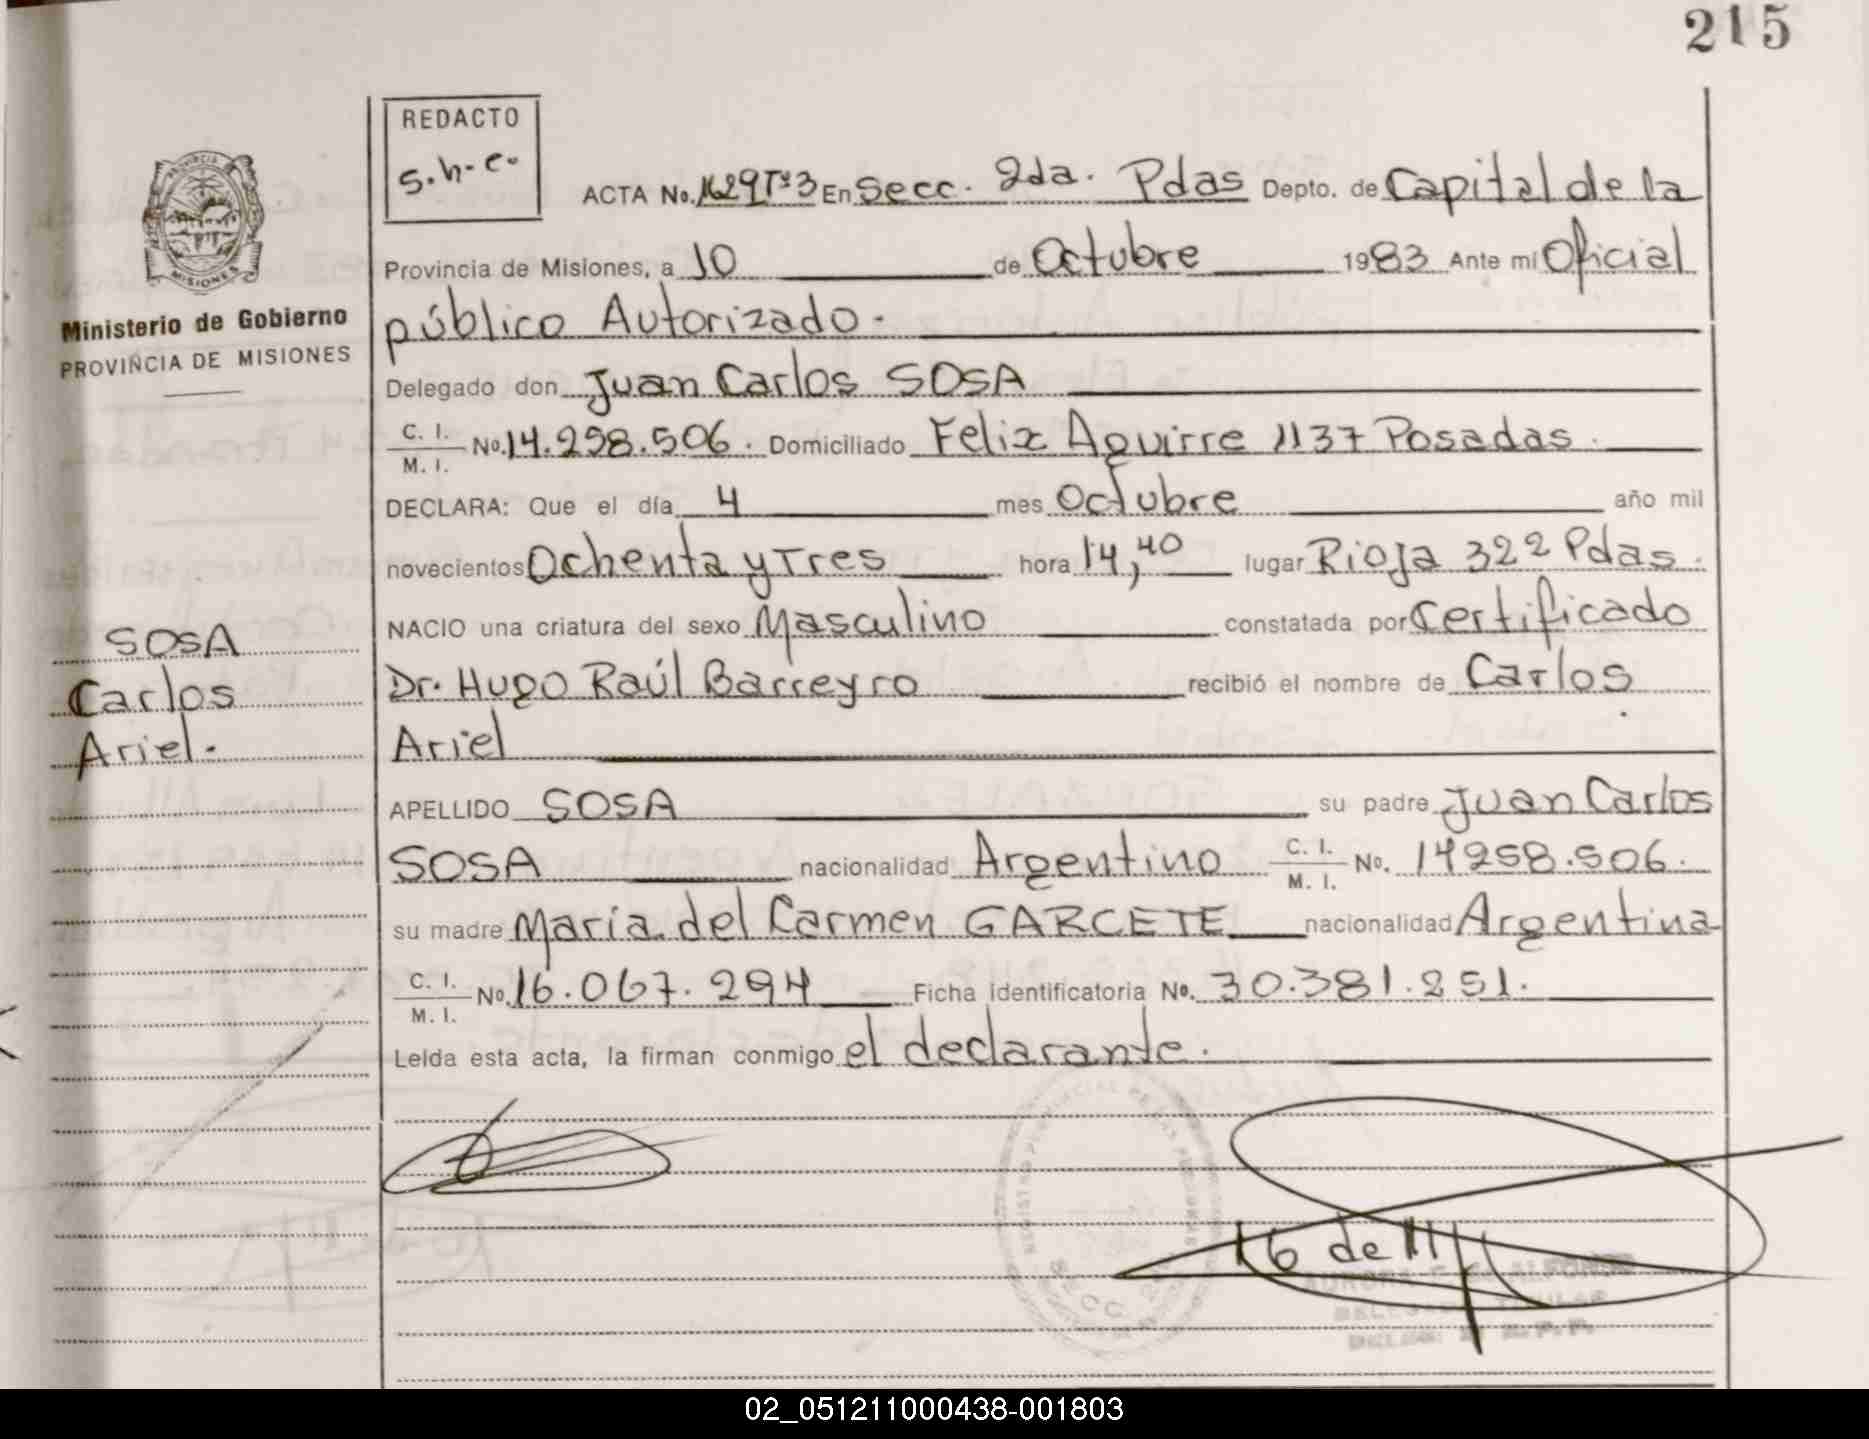 215
REDACTO
s.h.c.
PROVINCIA
MISIONES
Ministerio de Gobierno
PROVINCIA DE MISIONES
ACTA No. 1629 Tº3 En Secc. 2da. Pdas Depto. de Capital de la
Provincia de Misiones, a 10 de Octubre 1983 Ante mi Oficial
público Autorizado.
Delegado don Juan Carlos SOSA
C. I. / M. I. No. 14.258.506. Domiciliado Felix Aguirre 1137 Posadas.
DECLARA: Que el día 4 mes Octubre año mil
novecientos Ochenta y Tres hora 14,40 lugar Rioja 322 Pdas.
NACIO una criatura del sexo Masculino constatada por Certificado
Dr. Hugo Raúl Barreyro recibió el nombre de Carlos
Ariel
SOSA
Carlos
Ariel.
APELLIDO SOSA su padre Juan Carlos
SOSA nacionalidad Argentino C. I. / M. I. No. 14258.506.
su madre María del Carmen GARCETE nacionalidad Argentina
C. I. / M. I. No. 16.067.294 Ficha identificatoria No. 30.381.251.
Leída esta acta, la firman conmigo el declarante.
SECC.
02_051211000438-001803